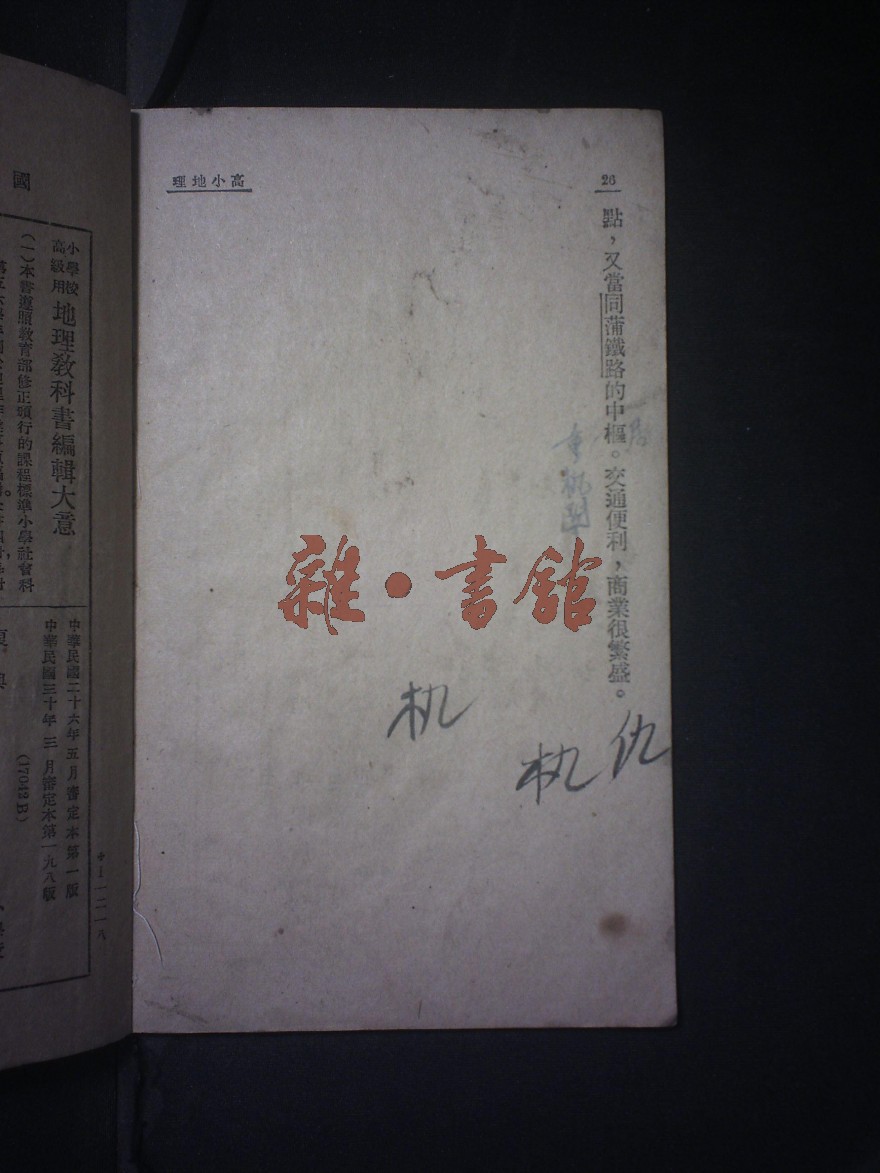 26
高小地理
點，又當同蒲鐵路的中樞。交通便利，商業很繁盛。
仇
机
机
雜·書館
國
小學校高級用
地理教科書編輯大意
（一）本書遵照教育部修正頒行的課程標準小學社會科
中華民國二十六年五月審定本第一版
中華民國三十年三月審定本第一九八版
(17042B)